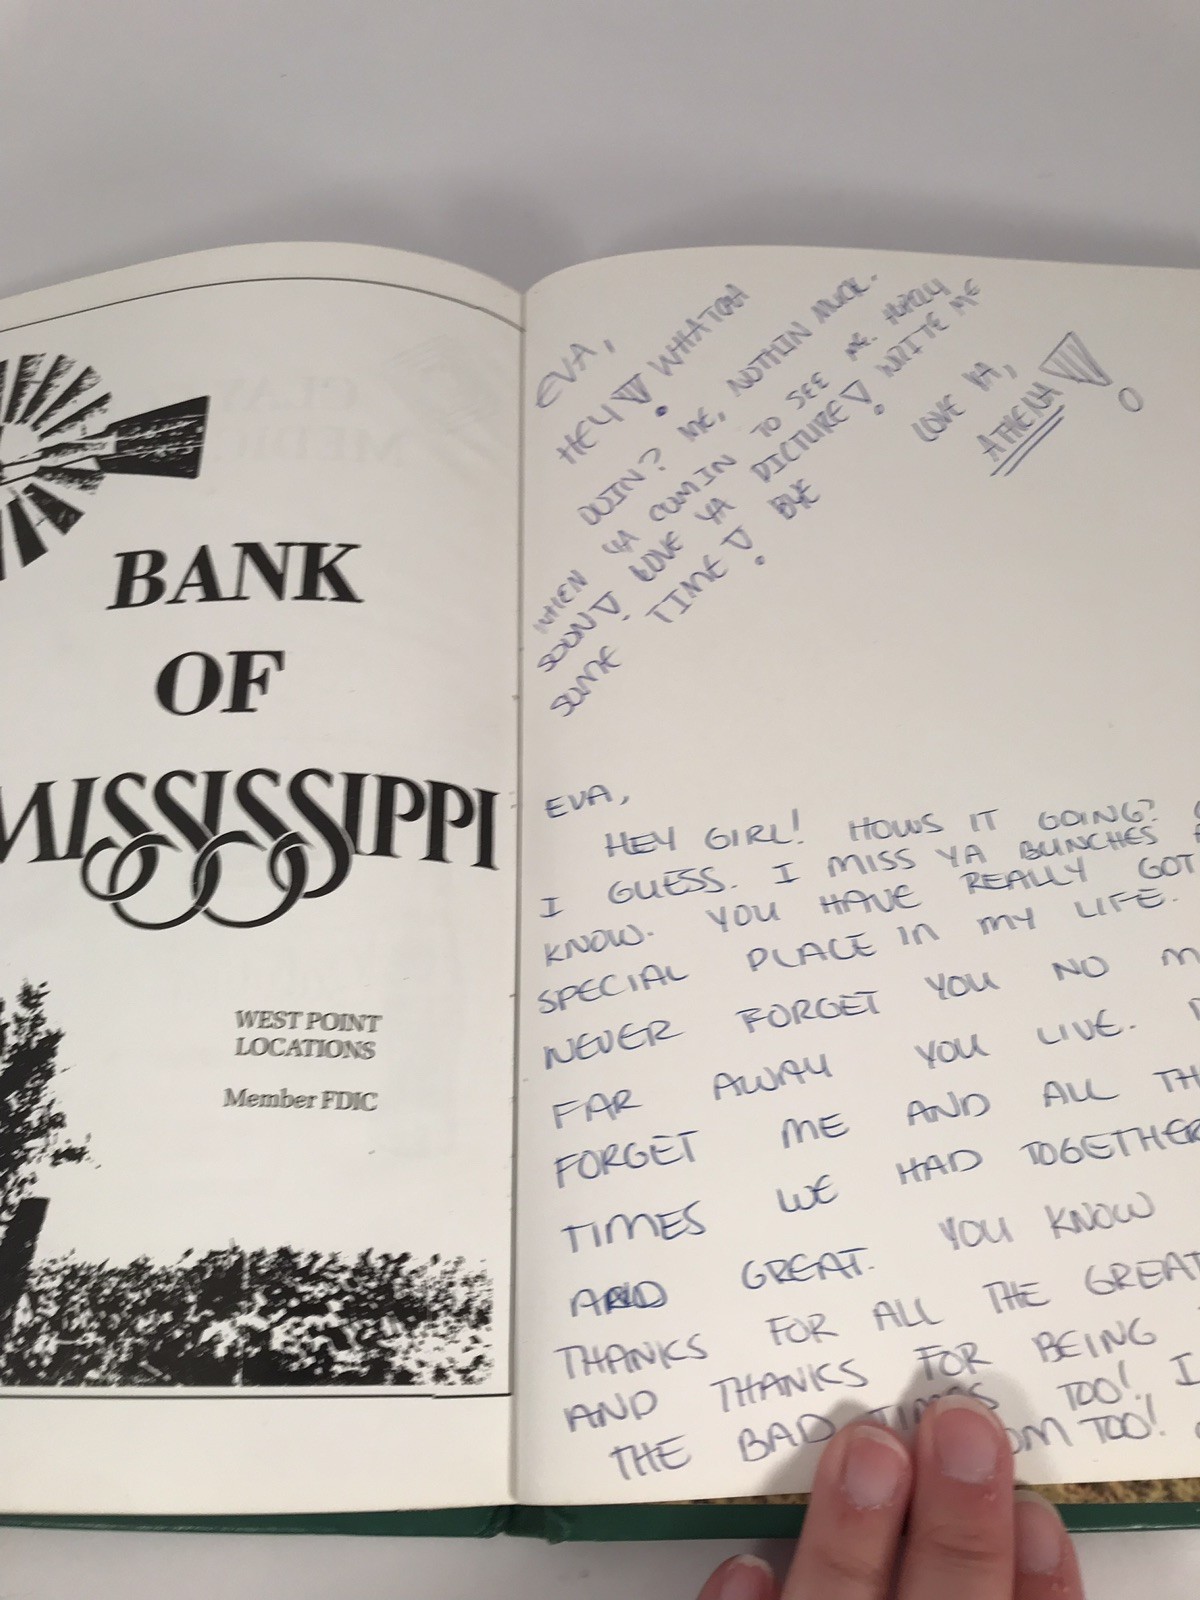 BANK
OF
MISSISSIPPI
WEST POINT
LOCATIONS
Member FDIC
EVA,
HEY! WHATCH
DOIN? ME, NOTHIN MUCH.
WHEN YA COMIN TO SEE ME
SOON! LOVE YA PICTURE! WRITE ME
SOME TIME! BYE
LOVE YA,
ATHENA!
EVA,
HEY GIRL! HOWS IT GOING?
I GUESS. I MISS YA BUNCHES
KNOW. YOU HAVE REALLY GOT
SPECIAL PLACE IN MY LIFE.
NEVER FORGET YOU NO M
FAR AWAY YOU LIVE.
FORGET ME AND ALL TH
TIMES WE HAD TOGETHER
AND GREAT. YOU KNOW
THANKS FOR ALL THE GREAT
AND THANKS FOR BEING
THE BAD TIMES TOO! I
OM TOO!